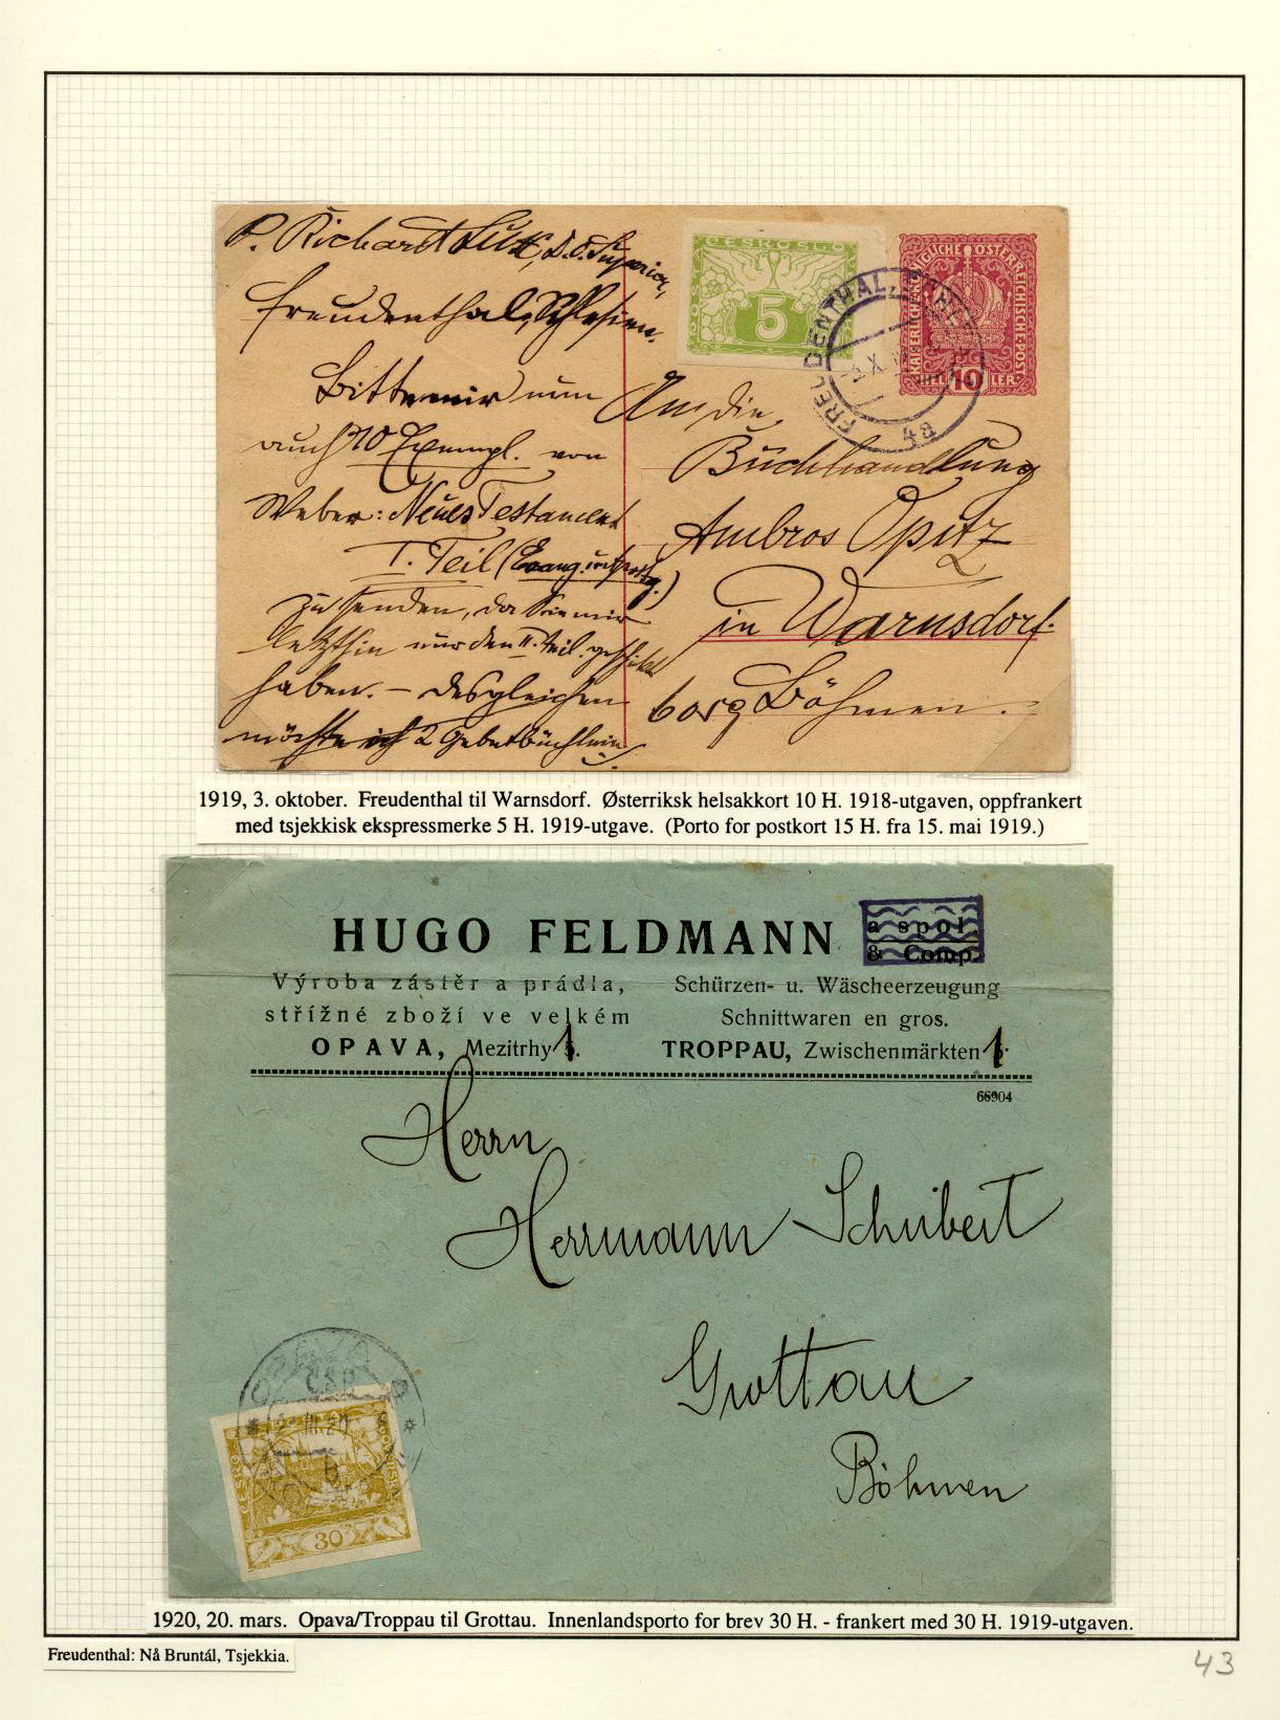 P. Richard Litz, D. O. Superior,
Freudenthal, Schlesien.
Bitte mir nun
auch 10 Exempl. von
Weber: Neues Testament
I. Teil (Evang. u. Apostelg.)
zu senden, da Sie mir
letzthin nur den II. Teil geschickt
haben. – Desgleichen
möchte ich 2 Gebetbüchlein
ČESKOSLO
5
KAISERLICHE KÖNIGLICHE ÖSTERREICHISCHE POST
10
HELLER
FREUDENTHAL,
X
4a
An die
Buchhandlung
Ambros Opitz
in Warnsdorf.
Böhmen.
1919, 3. oktober. Freudenthal til Warnsdorf. Østerriksk helsakkort 10 H. 1918-utgaven, oppfrankert
med tsjekkisk ekspressmerke 5 H. 1919-utgave. (Porto for postkort 15 H. fra 15. mai 1919.)
HUGO FELDMANN a spol.
& Comp.
Výroba zástěr a prádla,
střížné zboží ve velkém
OPAVA, Mezitrhy 1.
Schürzen- u. Wäscheerzeugung
Schnittwaren en gros.
TROPPAU, Zwischenmärkten 1
66904
Herrn
Herrmann Schubert
Grottau
Böhmen
OPAVA
ČSP
III 20
30
1920, 20. mars. Opava/Troppau til Grottau. Innenlandsporto for brev 30 H. - frankert med 30 H. 1919-utgaven.
Freudenthal: Nå Bruntál, Tsjekkia.
43